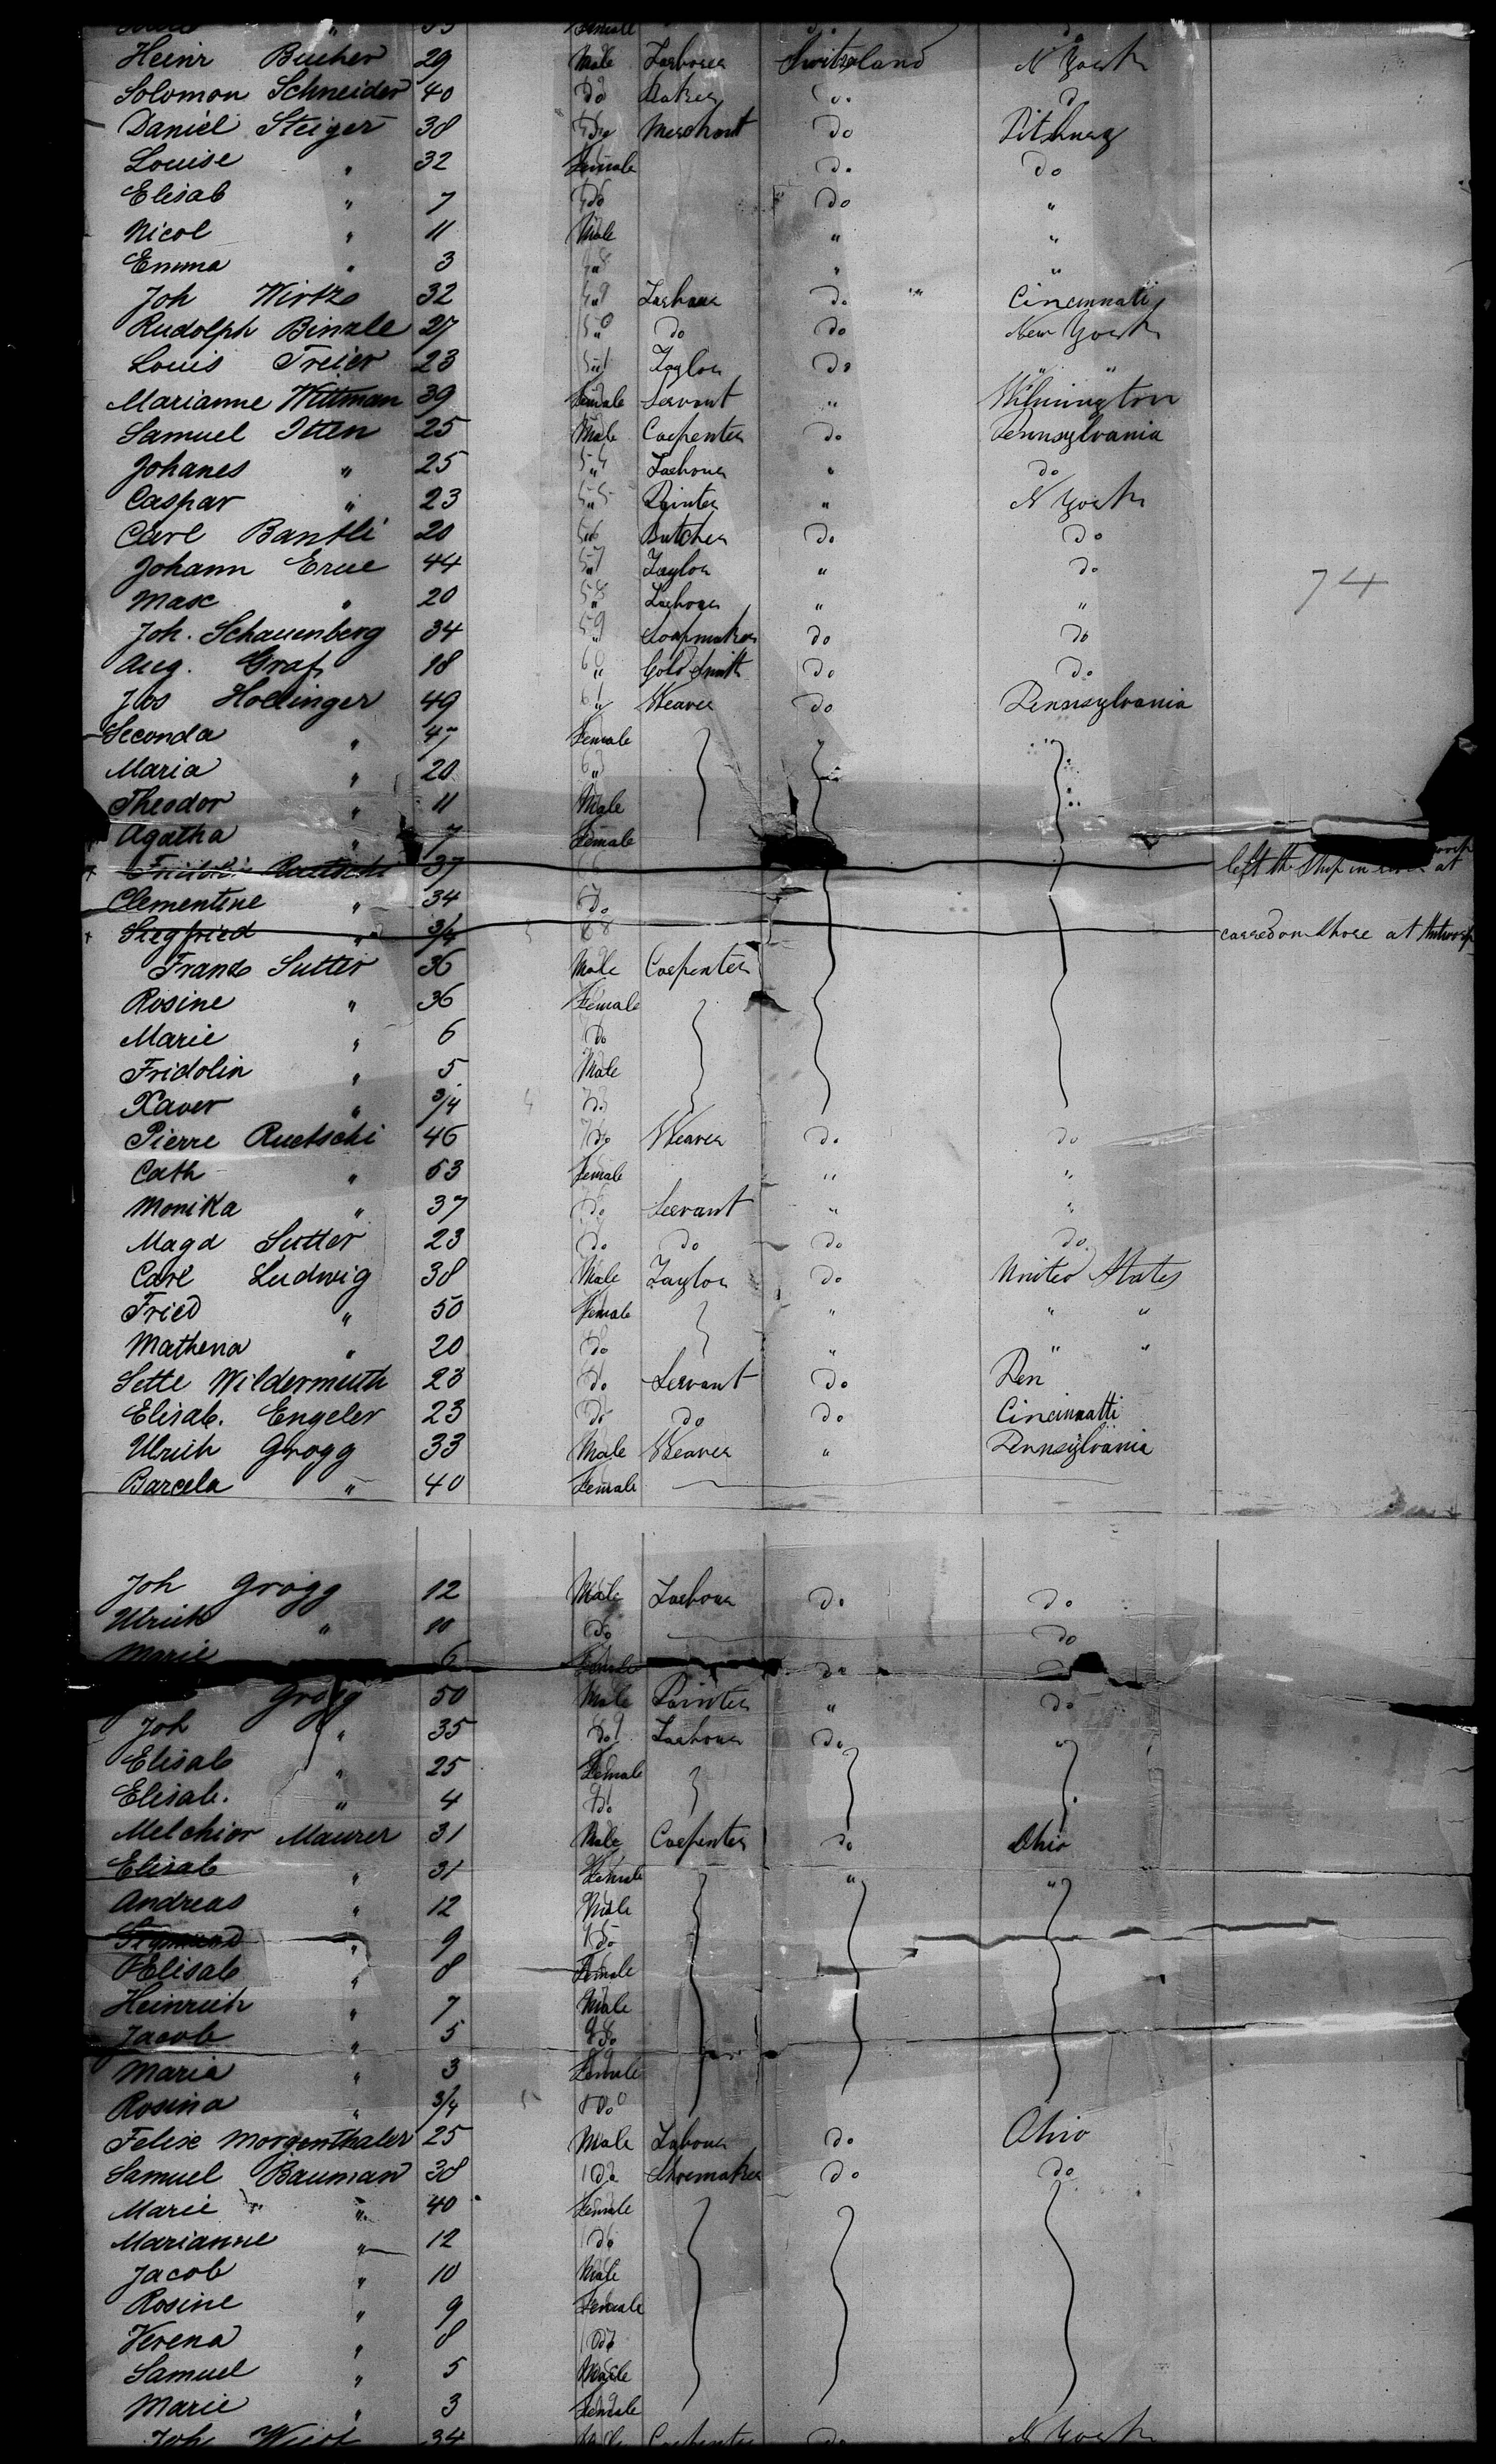 " 35 Female do
Heinr Bucher 29 Male Labourer Switzerland N York
Solomon Schneider 40 Do Baker " Do
Daniel Steiger 38 Do Merchant Do Pitsburg
Louise " 32 Female Do Do
Elisab " 7 Do Do "
Nicol " 11 Male " "
Emma " 3 " " "
Joh Wirtz 32 49 " Labourer Do Cincinnati
Rudolph Binzle 27 50 " Do Do New York
Louis Freier 23 51 " Taylor Do " "
Marianne Wittman 39 Female Servant " Wilmington
Samuel Itten 25 Male Carpenter Do Pennsylvania
Johanes " 25 54 " Labourer " Do
Caspar " 23 55 " Painter " N York
Carl Bantli 20 56 " Butcher Do Do
Johann Erue 44 57 " Taylor " Do
Max " 20 58 " Labourer " "
74
Joh. Schauenberg 34 59 " Soapmaker Do Do
Aug. Graf 18 60 " Gold Smith Do Do
Jos Hollinger 49 61 " Weaver Do Pennsylvania
Seconda " 47 Female " "
Maria " 20 63 "
Theodor " 11 Male
Agatha " 7 Female
Ruetschi 37 66 left the Ship in at
Clementine " 34 67 Do
Siegfried " 3/4 68 carred on Shore at Antwerp
Franz Sutter 36 Male Carpenter
Rosine " 36 Female
Marie " 6 Do
Fridolin " 5 Male
Xaver " 3/4 Do
Pierre Ruetschi 46 Do Weaver Do Do
Cath " 53 Female " "
Monika " 37 Do Servant " "
Magd Sutter 23 Do Do Do Do
Carl Ludwig 38 Male Taylor Do United States
Fried " 50 Female " " "
Mathena " 20 Do " " "
Sette Wildermuth 23 Do Servant Do Pen
Elisab. Engeler 23 Do Do Do Cincinnatti
Ulrich Grogg 33 Male Weaver " Pennsylvania
Barcela " 40 Female
Joh Grogg 12 Male Labourer Do Do
Ulrich " 10 Do Do
Marie 6 Female Do Do
Grogg 50 Male Painter " Do
Joh " 35 Do Labourer Do "
Elisab " 25 Female
Elisab. " 4 Do
Melchior Maurer 31 Male Carpenter Do Ohio
Elisab " 31 Female " "
Andreas " 12 Male
Sigmund " 9 Do
Elisab " 8 Female
Heinrich " 7 Male
Jacob " 5 Do
Maria " 3 Female
Rosina " 3/4 Do
Felix Morgenthaler 25 Male Labour Do Ohio
Samuel Bauman 38 Do Shoemaker Do Do
Marie " 40 Female
Marianne " 12 Do
Jacob " 10 Male
Rosine " 9 Female
Verena " 8 Do
Samuel " 5 Male
Marie " 3 Female
Joh 34 Male Carpenter Do N York